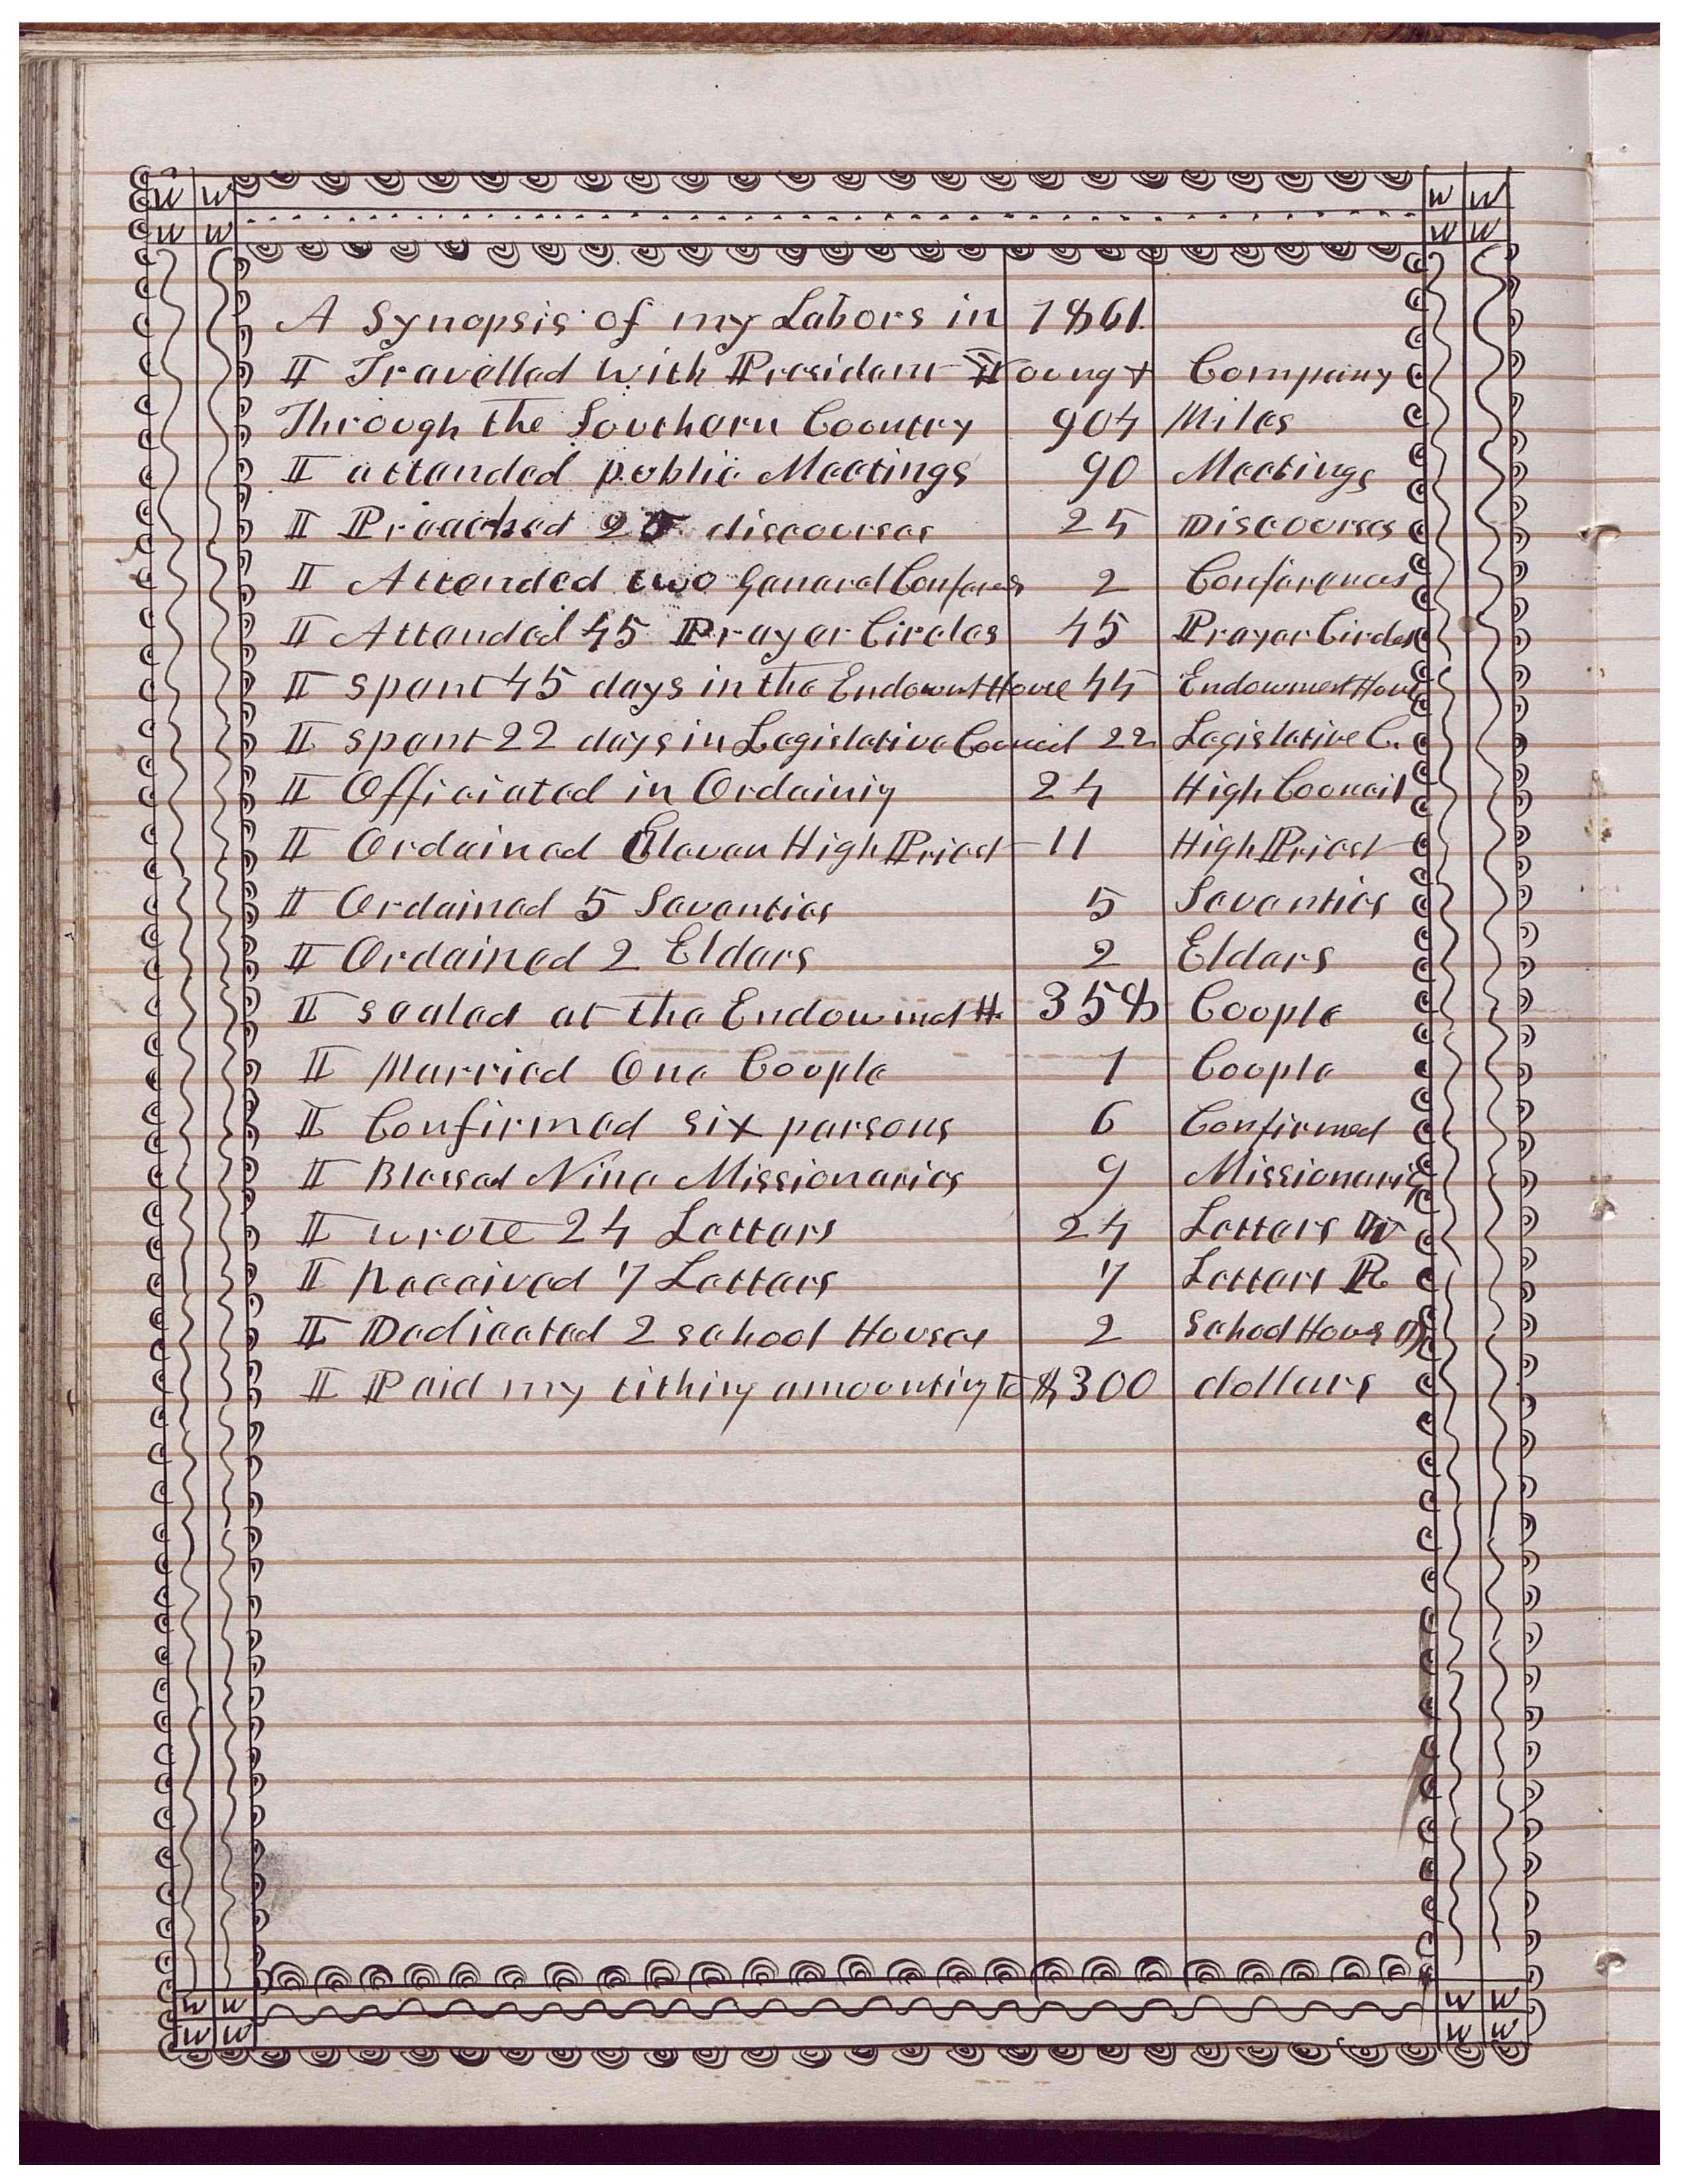 W W W W
W W W W
A Synopsis of my Labors in 1861.
I Travelled with President Young & Company
Through the Southern Country 904 Miles
I attended public Meetings 90 Meetings
I Preached 25 discourses 25 Discourses
I Attended two General Conferences 2 Conferences
I Attended 45 Prayer Circles 45 Prayer Circles
I spent 45 days in the Endowmt House 44 Endowment House
I spent 22 days in Legislative Council 22 Legislative C.
I Officiated in Ordainig 24 High Council
I Ordained Eleven High Priest 11 High Priest
I Ordained 5 Seventies 5 Seventies
I Ordained 2 Elders 2 Elders
I sealed at the Endowmet H. 358 Couple
I Married One Couple 1 Couple
I Confirmed six persons 6 Confirmed
I Blessed Nine Missionaries 9 Missionaries
I wrote 24 Letters 24 Letters W
I Received 7 Letters 7 Letters R
I Dedicated 2 school Houses 2 School Hous D
I Paid my tithing amounting to $300 dollars
W W W W
W W W W